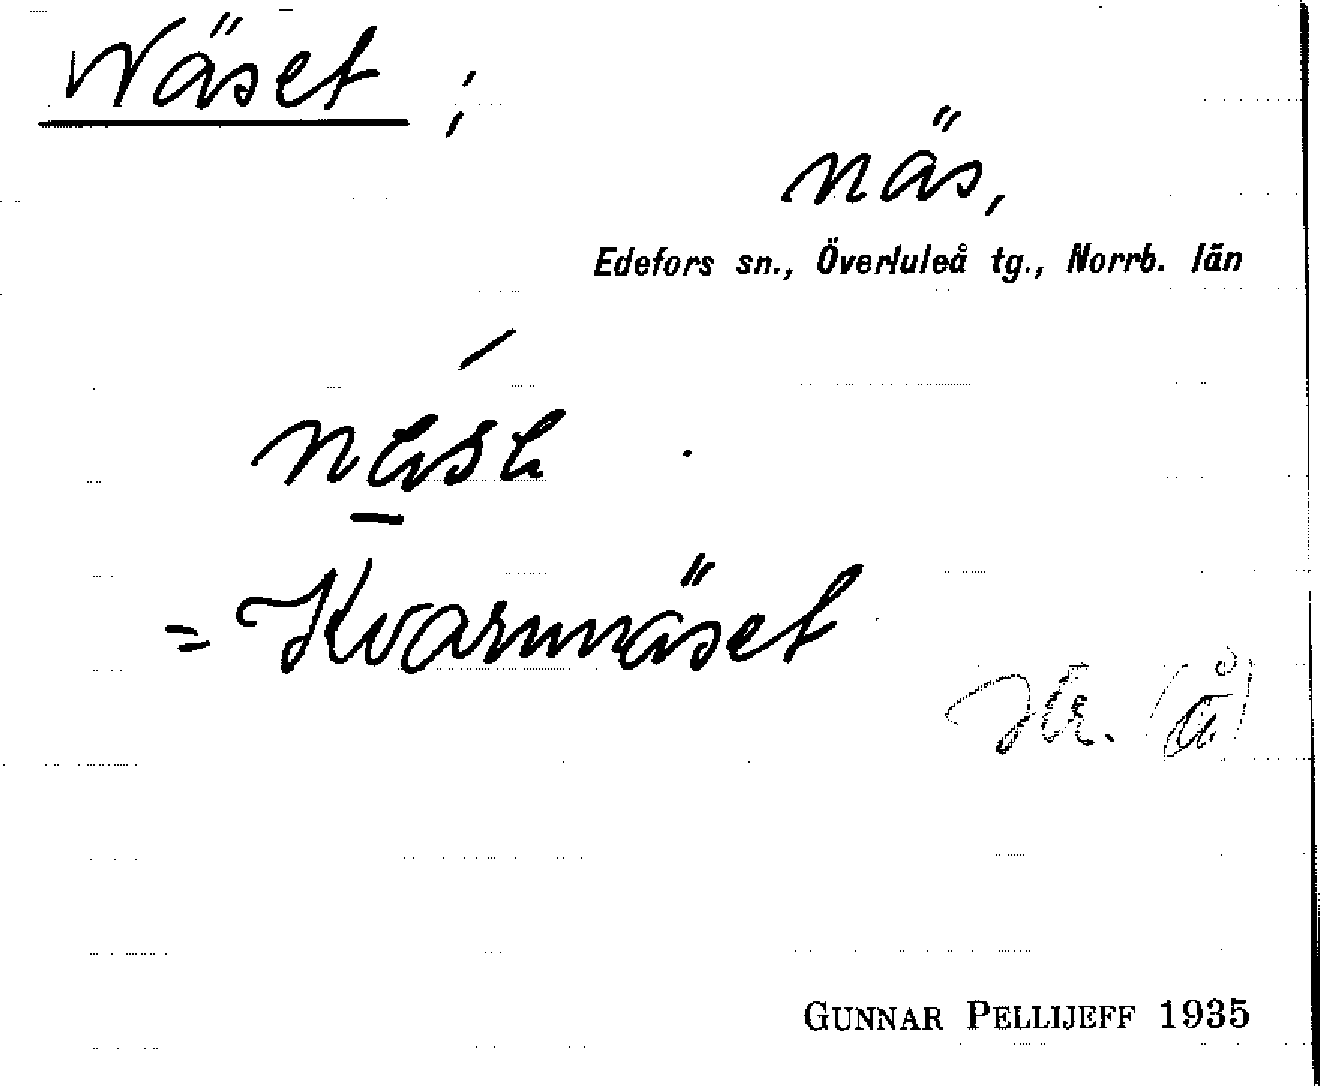 Näset ;
näs,
Edefors sn., Överluleå tg., Norrb. län
= Kvarnnäset
GUNNAR PELLIJEFF 1935